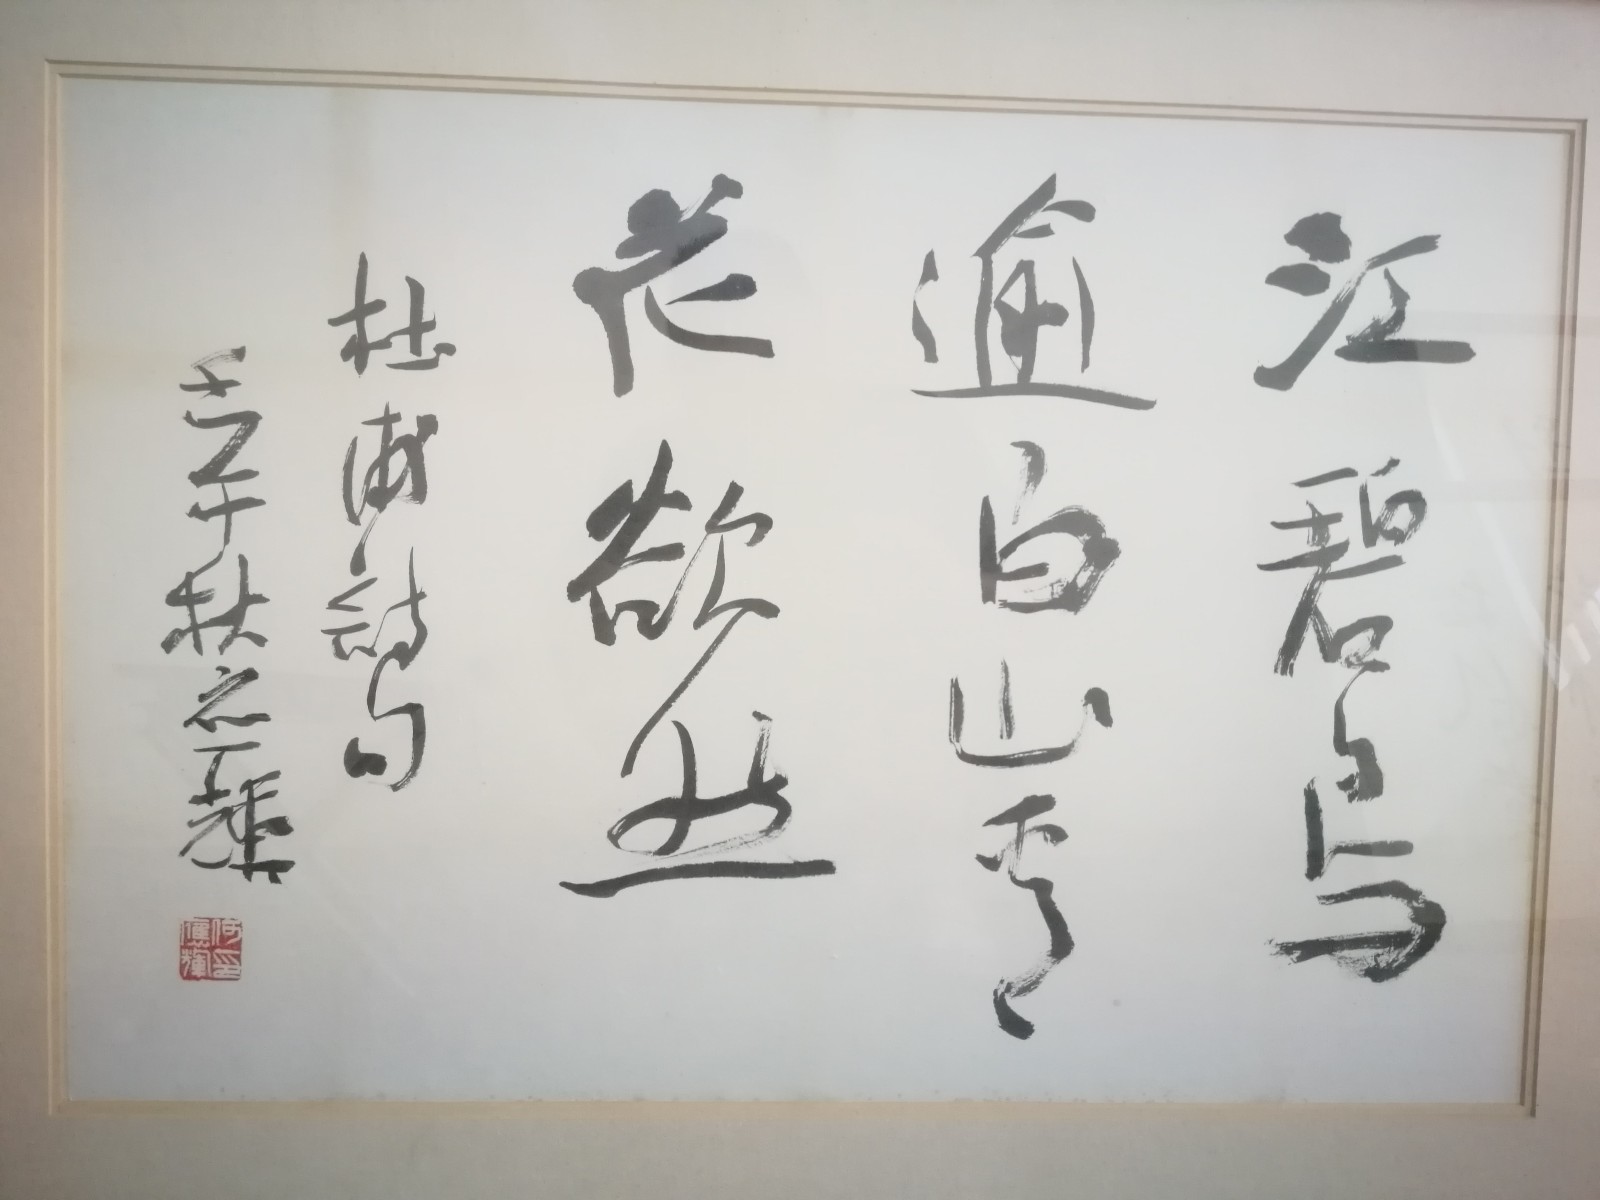 江碧鳥
逾白山青
花欲然
杜甫詩句
壬午秋之
何應輝印